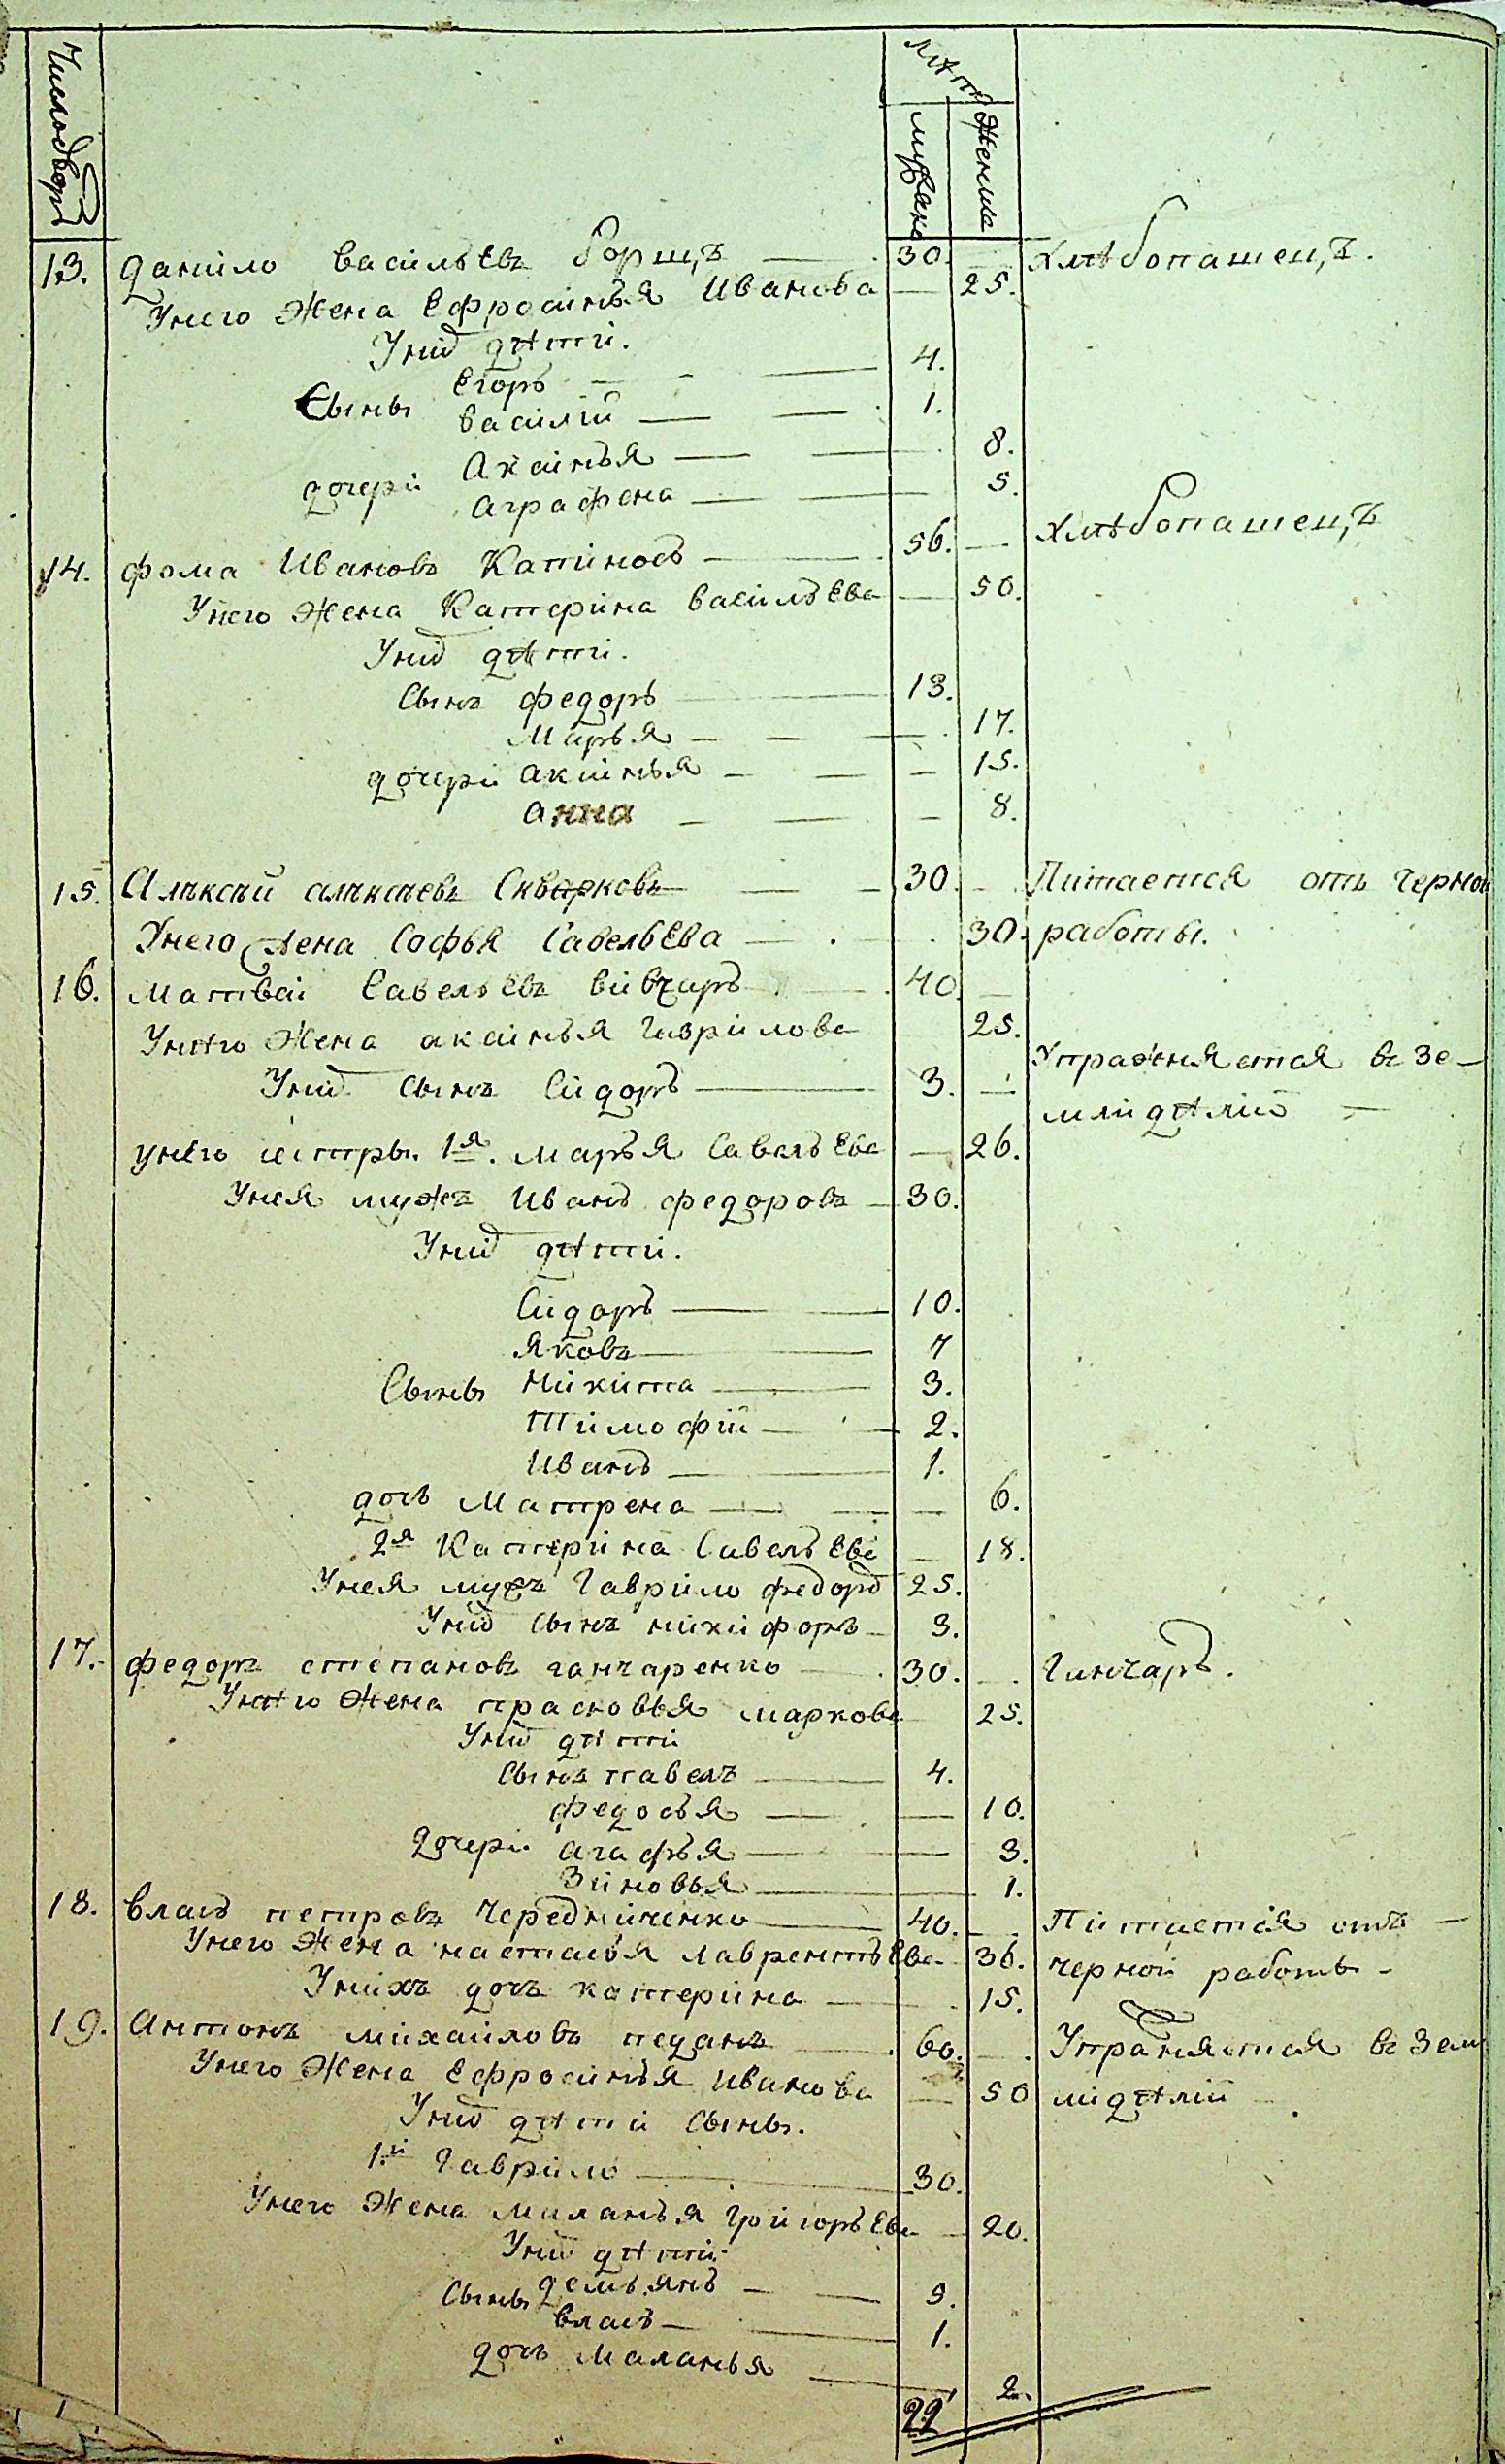 Число дворъ
лѣтъ
мужска
женска
13. Данило Васильевъ Борщъ 30. Хлѣбопашецъ.
У него жена Ефросинья Иванова 25.
У нихъ дѣти.
Егоръ 4.
Сыны
Василий 1.
Аксинья 8.
дочери
Аграфена 5.
14. Фома Ивановъ Капиносъ 56. Хлѣбопашецъ
У него жена Катерина Васильева 50.
У нихъ дѣти.
Сынъ Федоръ 13.
Марья 17.
дочери Аксинья 15.
Анна 8.
15. Алексѣй Алексѣевъ Скварковъ 30. Питается отъ черной
У него жена Софья Савельева 30. работы.
16. Матвей Савельевъ Вивчаръ 40.
У него жена Аксинья Гаврилова 25.
Упражняется въ зе-
У нихъ сынъ Сидоръ 3.
млидѣлии
у него сестры. 1я. Марья Савельева 26.
У нея мужъ Иванъ Федоровъ 30.
У нихъ дѣти.
Сидоръ 10.
Яковъ 7
Сыны Никита 3.
Тимофий 2.
Иванъ 1.
дочь Матрена 6.
2я Катерина Савельева 18.
У нея мужъ Гаврило Федоро 25.
У нихъ сынъ Никифоръ 3.
17. Федоръ Степановъ Ганчаренко 30. Ганчаръ.
У него жена Прасковья Маркова 25.
У нихъ дѣти
Сынъ Павелъ 4.
Федосья 10.
Дочери Агафья 3.
Зиновья 1.
18. Власъ Петровъ Чередниченко 40. Питается отъ
У него жена Настасья Лаврентьева 36. черной работы
У нихъ дочь Катерина 15.
19. Антонъ Михайловъ Педанъ 60. Упражняется въ зем
У него жена Ефросинья Иванова 50 лидѣлии
У нихъ дѣти сыны.
1.й Гаврило 30.
У него жена Миланья Григорьева 20.
У нихъ дѣти
Сыны Демьянъ 9.
Власъ 1.
дочь Маланья 2.
22